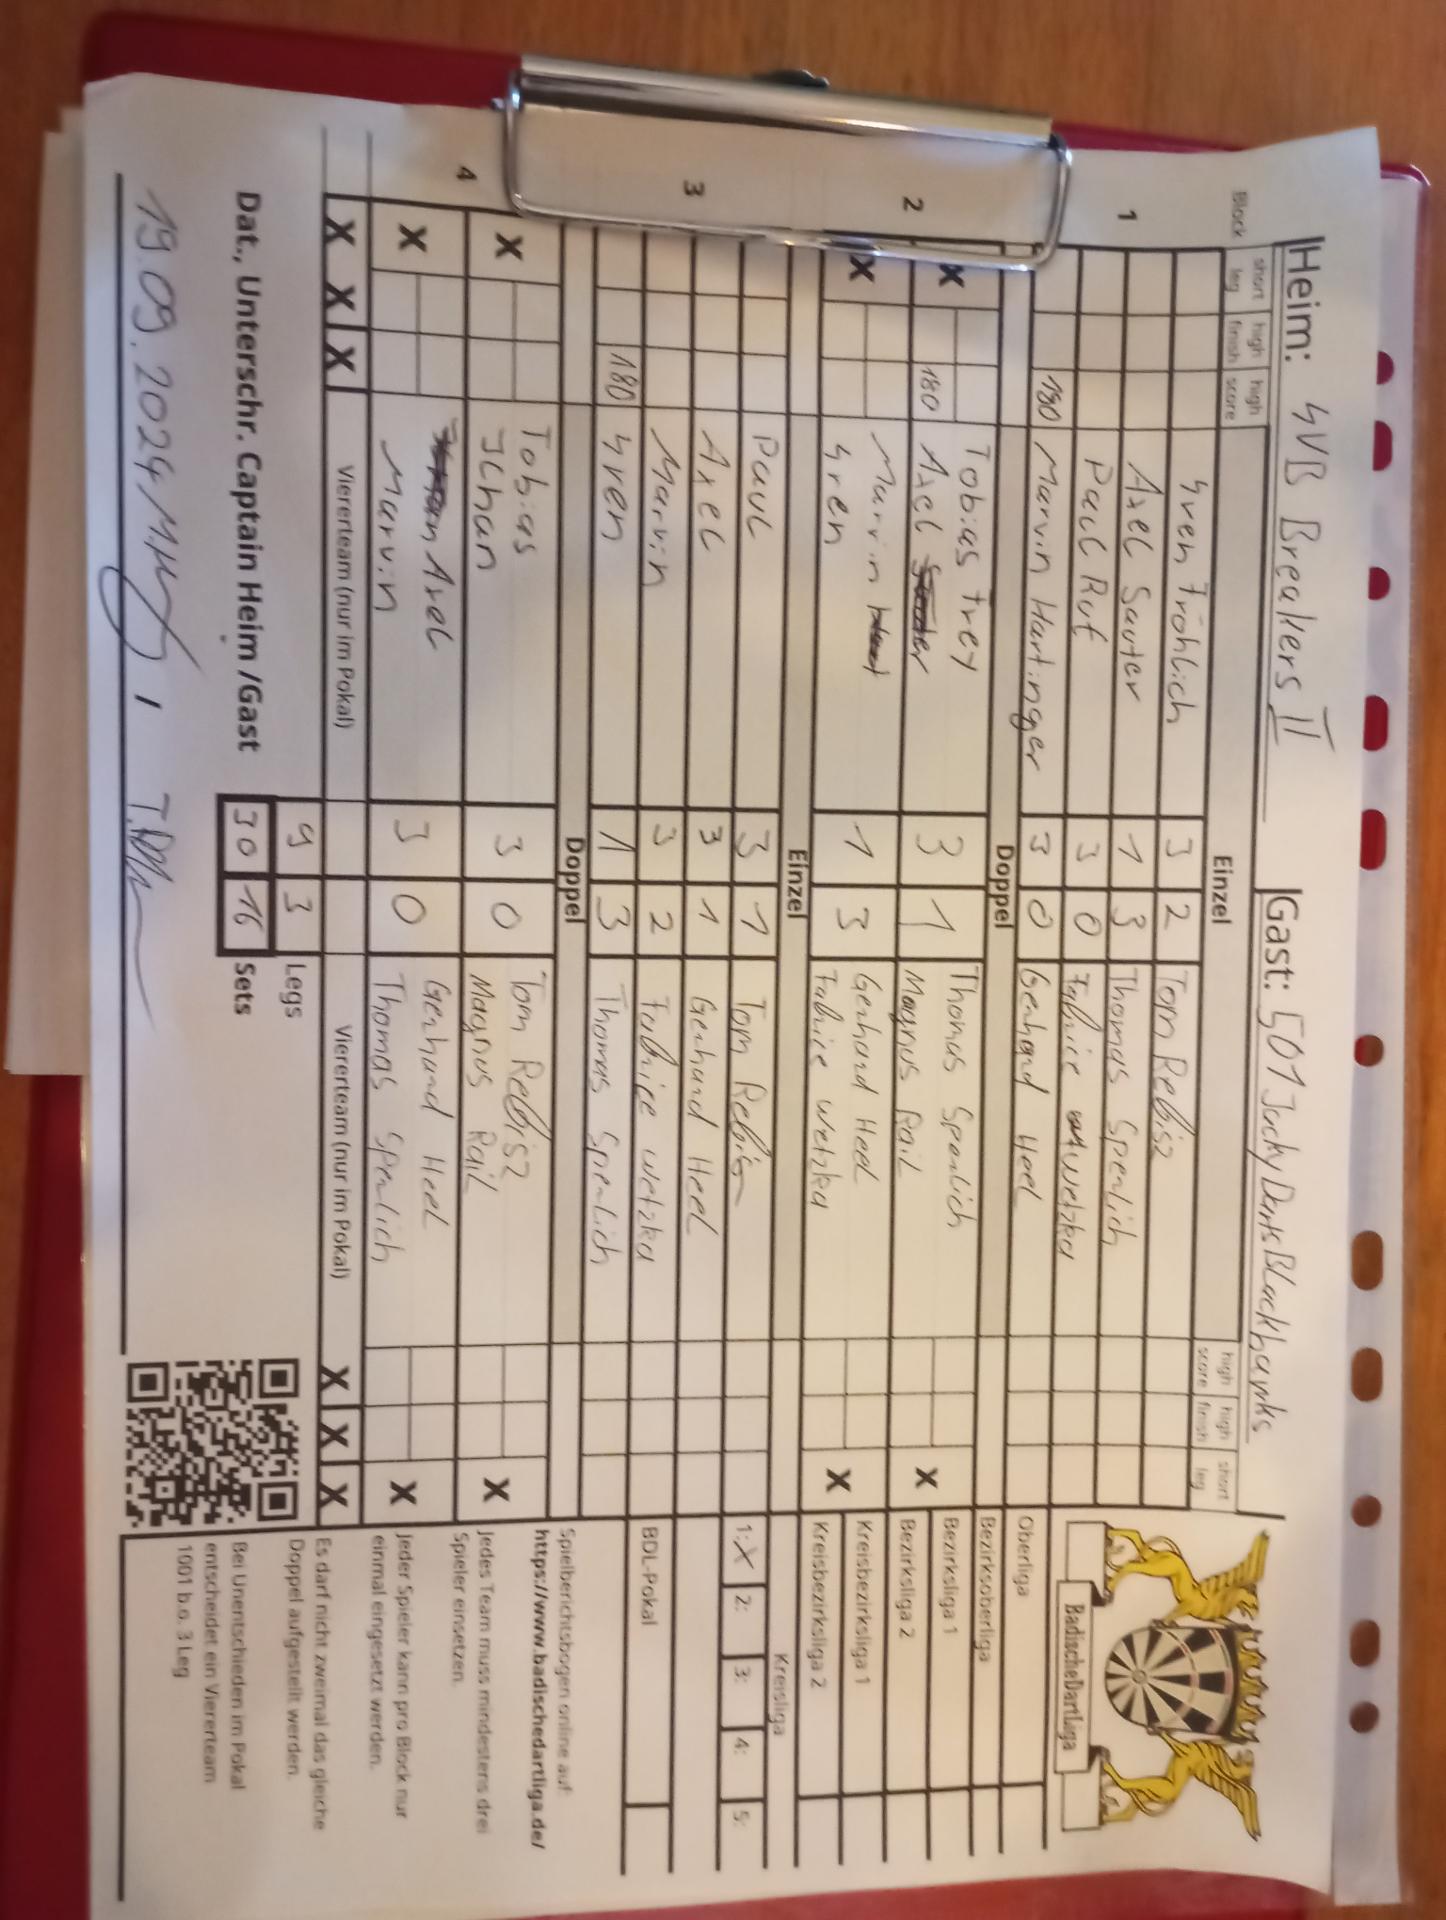 Heim: SVB Breakers II Gast: 501 JackyDartsBlackhawks
Block short leg high finish high score Einzel high score high finish short leg
1
Sven Fröhlich 3 2 Tom Rebisz
Axel Sauter 1 3 Thomas Sperlich
Paul Ruf 3 0 Fabrice Wetzka
180 Marvin Hartinger 3 0 Gerhard Heel
Doppel
2
X Tobias Frey 3 1 Thomas Sperlich X
180 Axel Magnus Rail
X Marvin 1 3 Gerhard Heel X
Sven Fabrice Wetzka
Einzel
3
Paul 3 1 Tom
Axel 3 1 Gerhard Heel
Marvin 3 2 Fabrice Wetzka
180 Sven 1 3 Thomas Sperlich
Doppel
4
X Tobias 3 0 Tom Rebisz X
Magnus Rail
X Axel 3 0 Gerhard Heel X
Marvin Thomas Sperlich
X X X Viererteam (nur im Pokal) Viererteam (nur im Pokal) X X X
9 3 Legs
Dat., Unterschr. Captain Heim /Gast 30 16 Sets
19.09.2024/
BadischeDartLiga
Oberliga
Bezirksoberliga
Bezirksliga 1
Bezirksliga 2
Kreisbezirksliga 1
Kreisbezirksliga 2
Kreisliga
1: X 2: 3: 4: 5:
BDL-Pokal
Spielberichtsbogen online auf:
https://www.badischedartliga.de/
Jedes Team muss mindestens drei
Spieler einsetzen.
Jeder Spieler kann pro Block nur
einmal eingesetzt werden.
Es darf nicht zweimal das gleiche
Doppel aufgestellt werden.
Bei Unentschieden im Pokal
entscheidet ein Viererteam
1001 b.o. 3 Leg